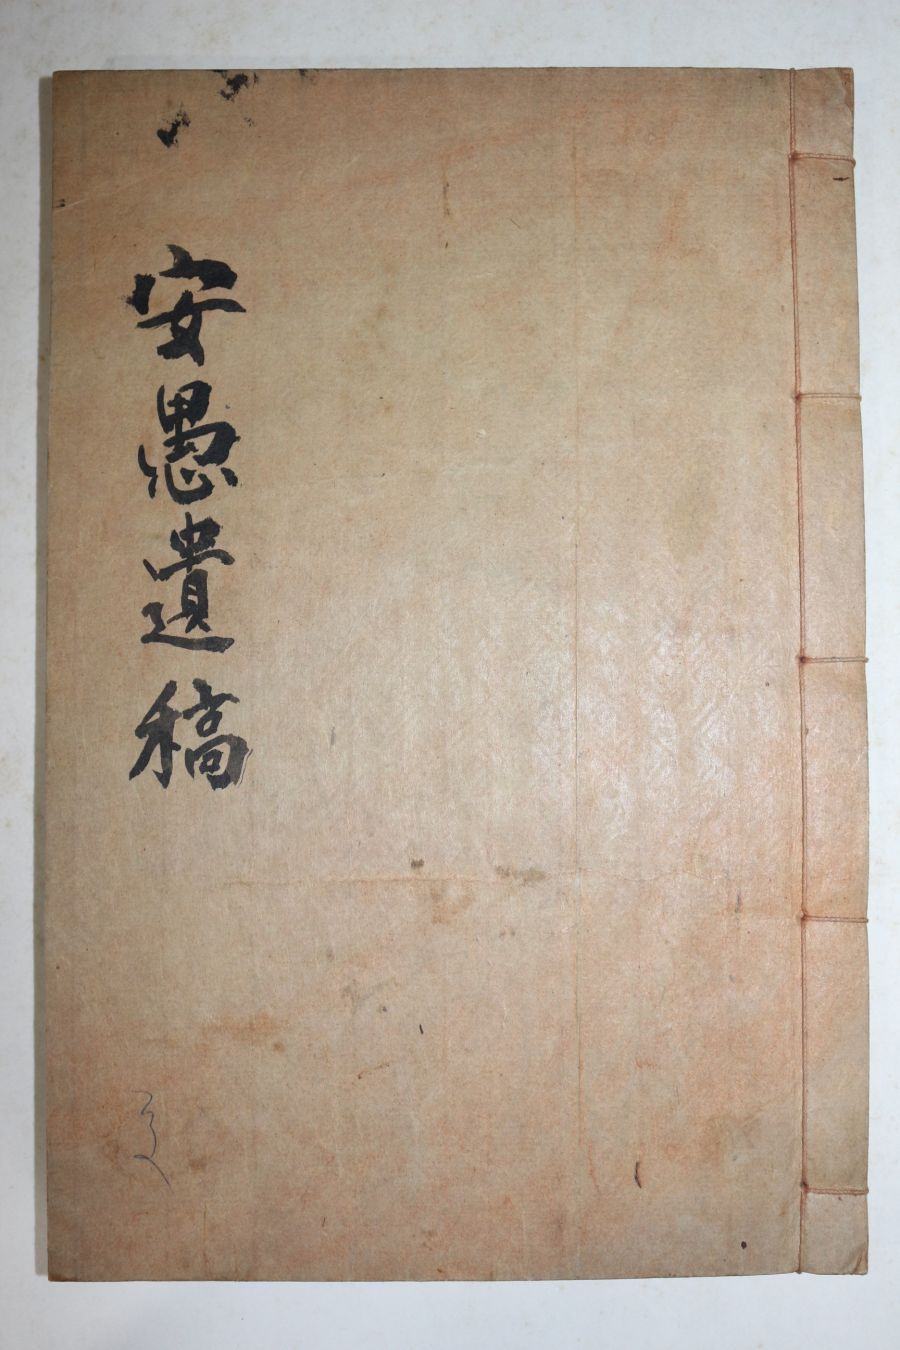 安愚遺稿